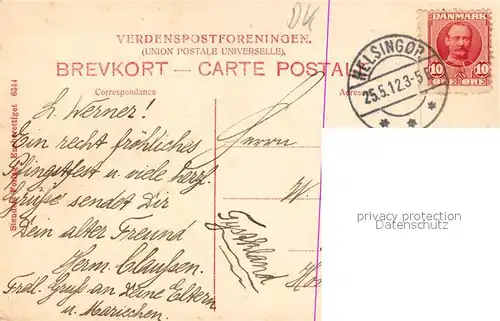 DK
VERDENSPOSTFORENINGEN.
(UNION POSTALE UNIVERSELLE).
BREVKORT — CARTE POSTAL
Correspondance
Adres
DANMARK
10 10
ØRE ØRE
HELSINGØR
25.5.12.3-5
L. Werner!
Ein recht fröhliches
Pfingstfest u. viele herzl.
Grüße sendet Dir
Dein alter Freund
Herm. Claußen.
Frdl. Gruß an Deine Eltern
u. Mariechen.
Herrn
W
Tyskland
Stenders Forlag. Eneberettiget 6344
privacy protection
Datenschutz